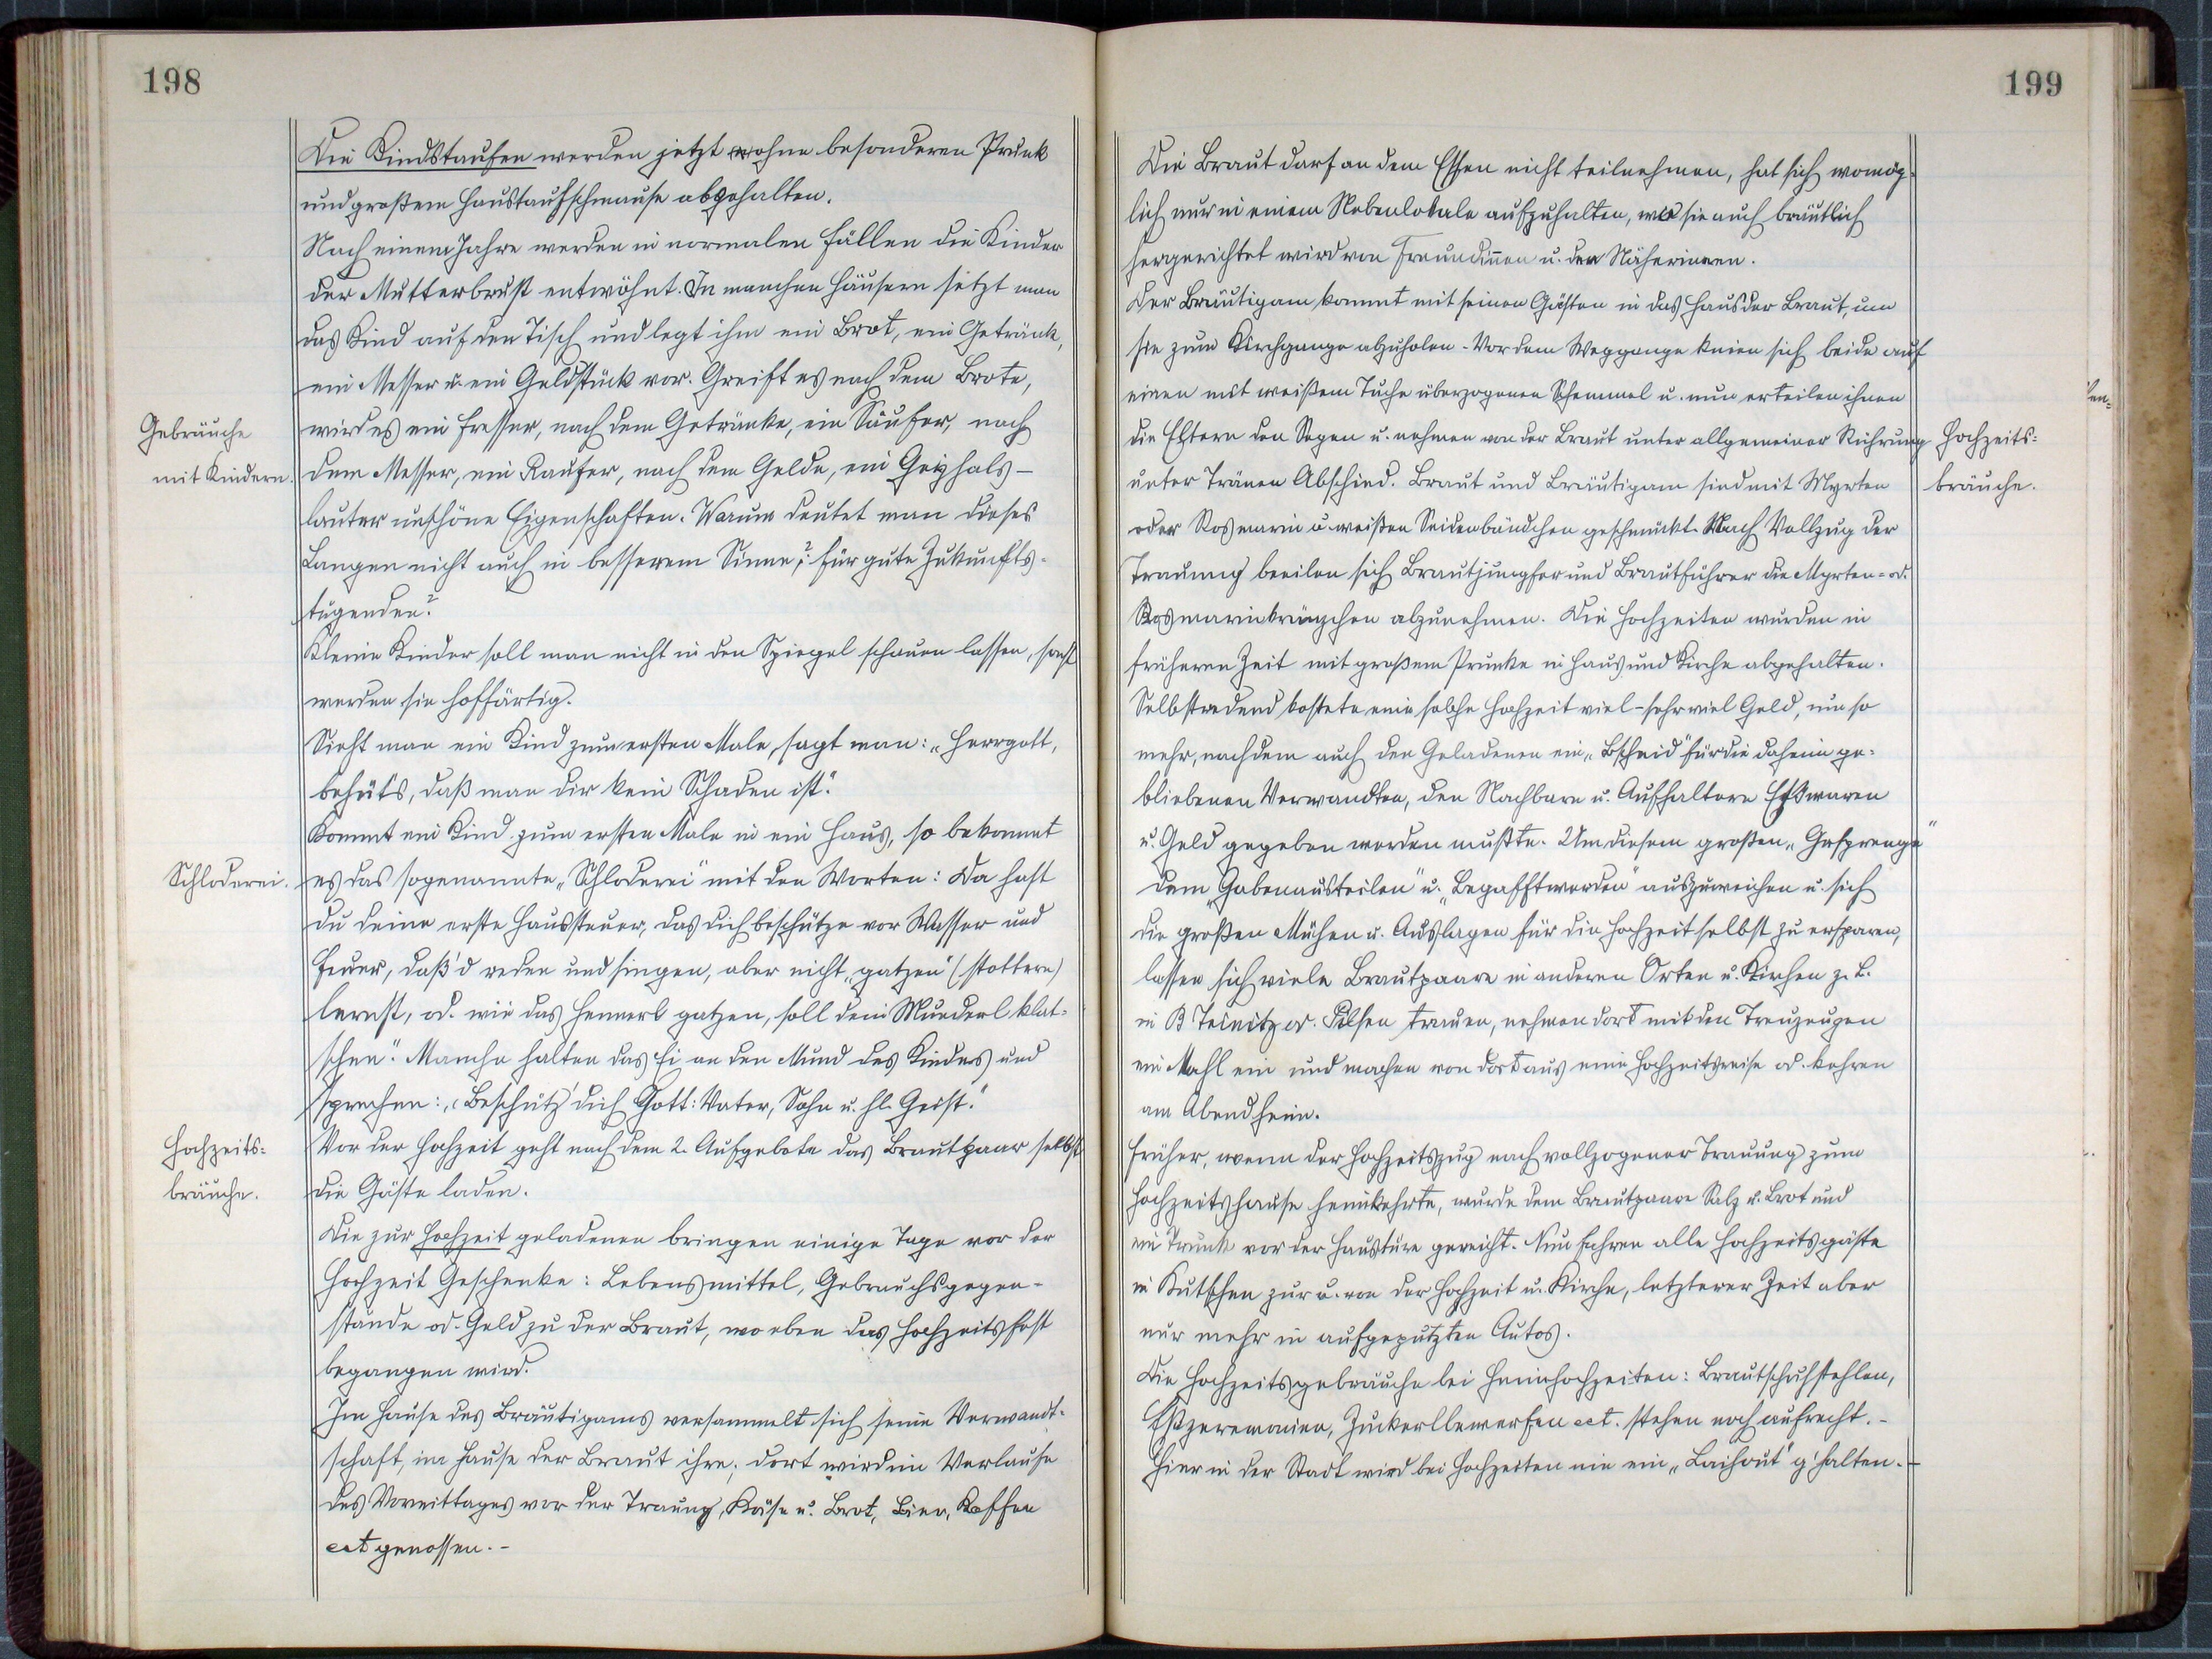 198
Die Kindstaufen werden jetzt ohne besonderen Prunk
und großem Haustaufschmause abgehalten.
Nach einem Jahre werden in normalen Fällen die Kinder
der Mutterbrust entwöhnt. In manchen Häusern setzt man
das Kind auf den Tisch und legt ihm ein Brot, ein Getränk,
ein Messer u. ein Geldstück vor. Greift es nach dem Brote,
Gebräuche
mit Kindern.
wird es ein Fresser, nach dem Getränke, ein Säufer, nach
dem Messer, ein Raufer, nach dem Gelde, ein Geizhals –
lauter unschöne Eigenschaften. Warum deutet man dieses
Langen nicht auch in besserem Sinne,? für gute Zukunfts-
tugenden?
Kleine Kinder soll man nicht in den Spiegel schauen lassen, sonst
werden sie hoffärtig.
Sieht man ein Kind zum ersten Male, sagt man: „Herrgott,
behüt's, daß man dir kein Schaden ist."
Kommt ein Kind zum ersten Male in ein Haus, so bekommt
Schloderei.
es das sogenannte „Schloderei" mit den Worten: Da hast
du deine erste Haussteuer, das dich beschütze vor Wasser und
Feuer, daß'd reden und singen, aber nicht „gatzen" (stottern)
lernst, od. wie das Hennerl gatzen, soll dein Munderl klat-
schen." Manche halten das Ei an den Mund des Kindes und
sprechen: „Beschütz' dich Gott: Vater, Sohn u. hl. Geist."
Hochzeits=
bräuche.
Vor der Hochzeit geht nach dem 2. Aufgebote das Brautpaar selbst
die Gäste laden.
Die zur Hochzeit geladenen bringen einige Tage vor der
Hochzeit Geschenke: Lebensmittel, Gebrauchsgegen-
stände od. Geld zu der Braut, wo eben das Hochzeitsfest
begangen wird.
Im Hause des Bräutigams versammelt sich seine Verwandt-
schaft, im Hause der Braut ihre; dort wird im Verlaufe
des Vormittages vor der Trauung, Käse u. Brot, Bier, Kaffee
ect genossen. –
199
Die Braut darf an dem Essen nicht teilnehmen, hat sich womög-
lich nur in einem Nebenlokale aufzuhalten, wo sie auch bräutlich
hergerichtet wird von Freundinnen u. den Näherinnen.
Der Bräutigam kommt mit seinen Gästen in das Haus der Braut, um
sie zum Kirchgange abzuholen – Vor dem Weggange knien sich beide auf
einen mit weißem Tuche überzogenen Schemmel u. nun erteilen ihnen
die Eltern den Segen u. nehmen von der Braut unter allgemeiner Rührung
Hochzeits=
bräuche.
unter Tränen Abschied. Braut und Bräutigam sind mit Myrten
oder Rosmarin u. weißen Seidenbändchen geschmückt. Nach Vollzug der
Trauung beeilen sich Brautjungfer und Brautführer die Myrten= od.
Rosmarinkränzchen abzunehmen. Die Hochzeiten wurden in
früheren Zeit mit großem Prunke in Haus und Kirche abgehalten.
Selbstredend kostete eine solche Hochzeit viel – sehr viel Geld, um so
mehr, nachdem auch den Geladenen ein „Bscheid" für die daheim ge=
bliebenen Verwandten, den Nachbarn u. Aufhaltern Eßwaren
u. Geld gegeben werden mußte. Um diesem großen „Gesprenge"
dem „Gabenausteilen" u. „Begafftwerden" auszuweichen u. sich
die großen Mühen u. Auslagen für die Hochzeit selbst zu ersparen,
lassen sich viele Brautpaare in anderen Orten u. Kirchen z. B.
in B Teinitz od. Pilsen trauen, nehmen dort mit den Treuzeugen
ein Mahl ein und machen von dort aus eine Hochzeitsreise od. kehren
am Abend heim.
Früher, wenn der Hochzeitszug nach vollzogener Trauung zum
Hochzeitshause heimkehrte, wurde dem Brautpaare Salz u. Brot und
ein Trunk vor der Haustüre gereicht. Nun fuhren alle Hochzeitsgäste
in Kutschen zur u. von der Hochzeit u. Kirche, letzterer Zeit aber
nur mehr in aufgeputzten Autos.
Die Hochzeitsgebräuche bei Heimhochzeiten: Brautschuhstehlen,
Eßzeremonien, Zuckerllewerfen ect. stehen noch aufrecht. –
Hier in der Stadt wird bei Hochzeiten nie ein „Laihout" g'halten. –